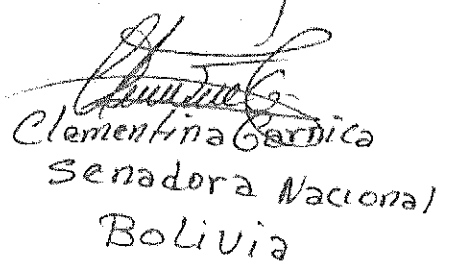 Clementina Garnica
Senadora Nacional
Bolivia